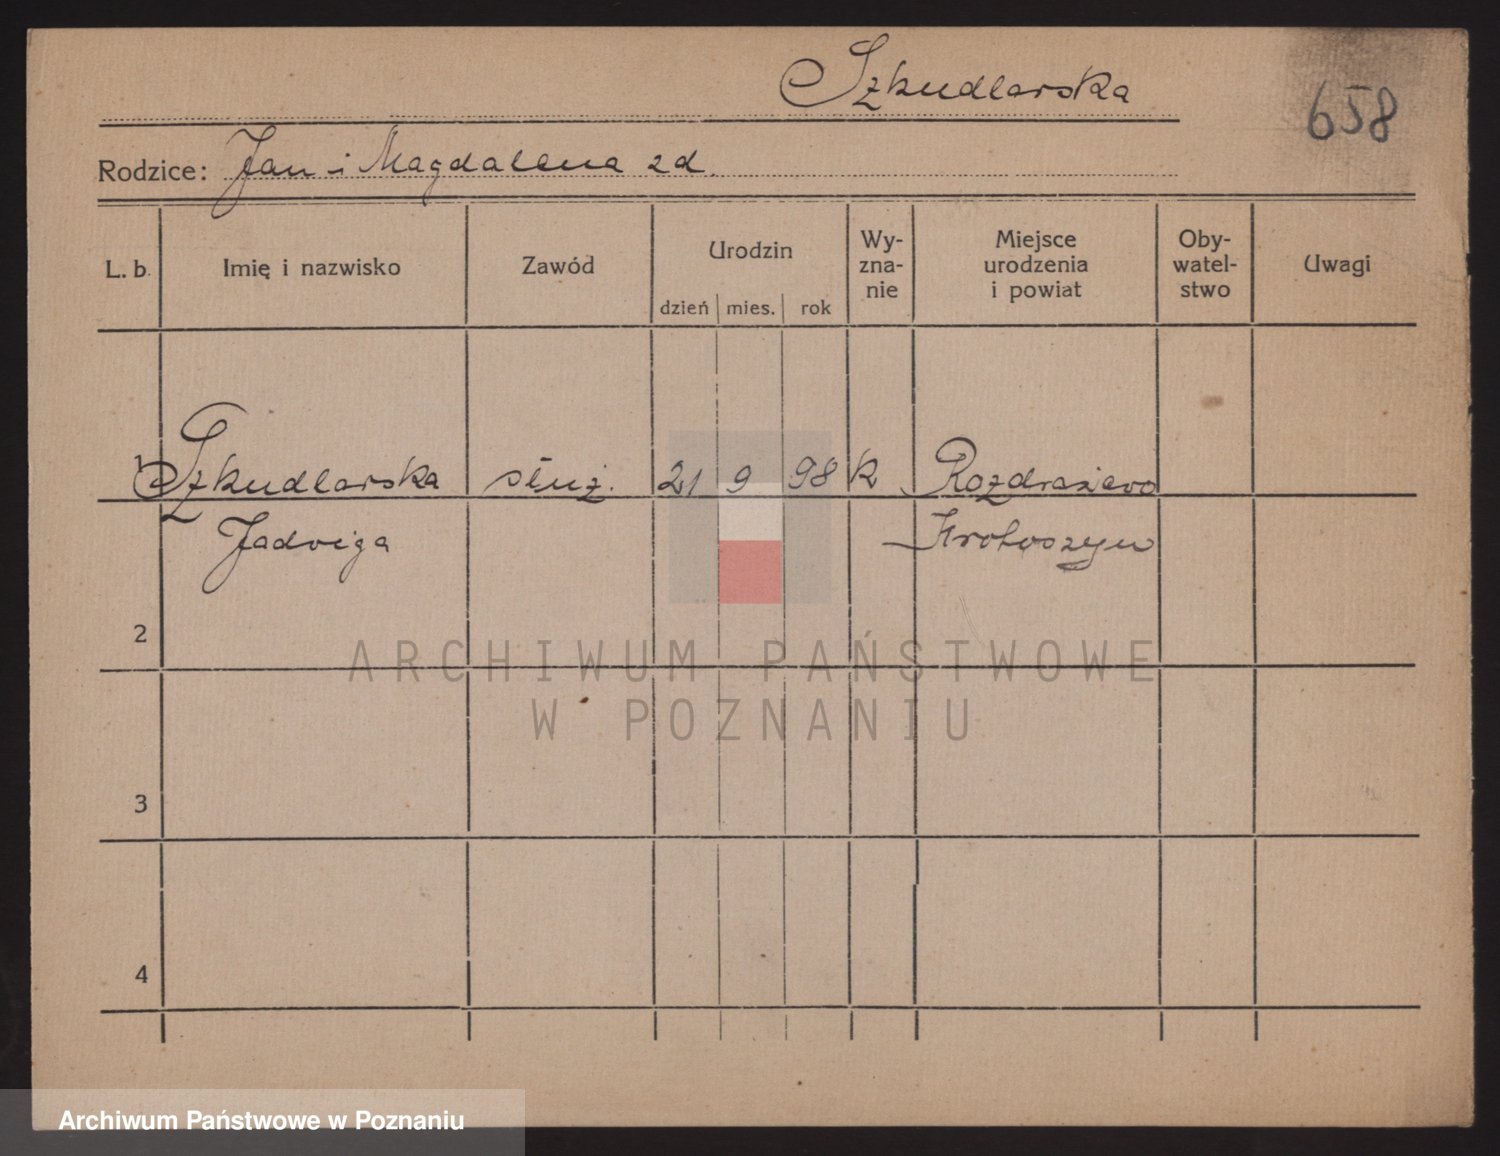 Szkudlarska
658
Rodzice: Jan i Magdalena zd.
L. b. Imię i nazwisko Zawód Urodzin dzień mies. rok Wy- zna- nie Miejsce urodzenia i powiat Oby- watel- stwo Uwagi
1 Szkudlarska służ. 21 9 98 k Rozdrażewo
Jadwiga Krotoszyn
2
3
4
ARCHIWUM PAŃSTWOWE
W POZNANIU
Archiwum Państwowe w Poznaniu